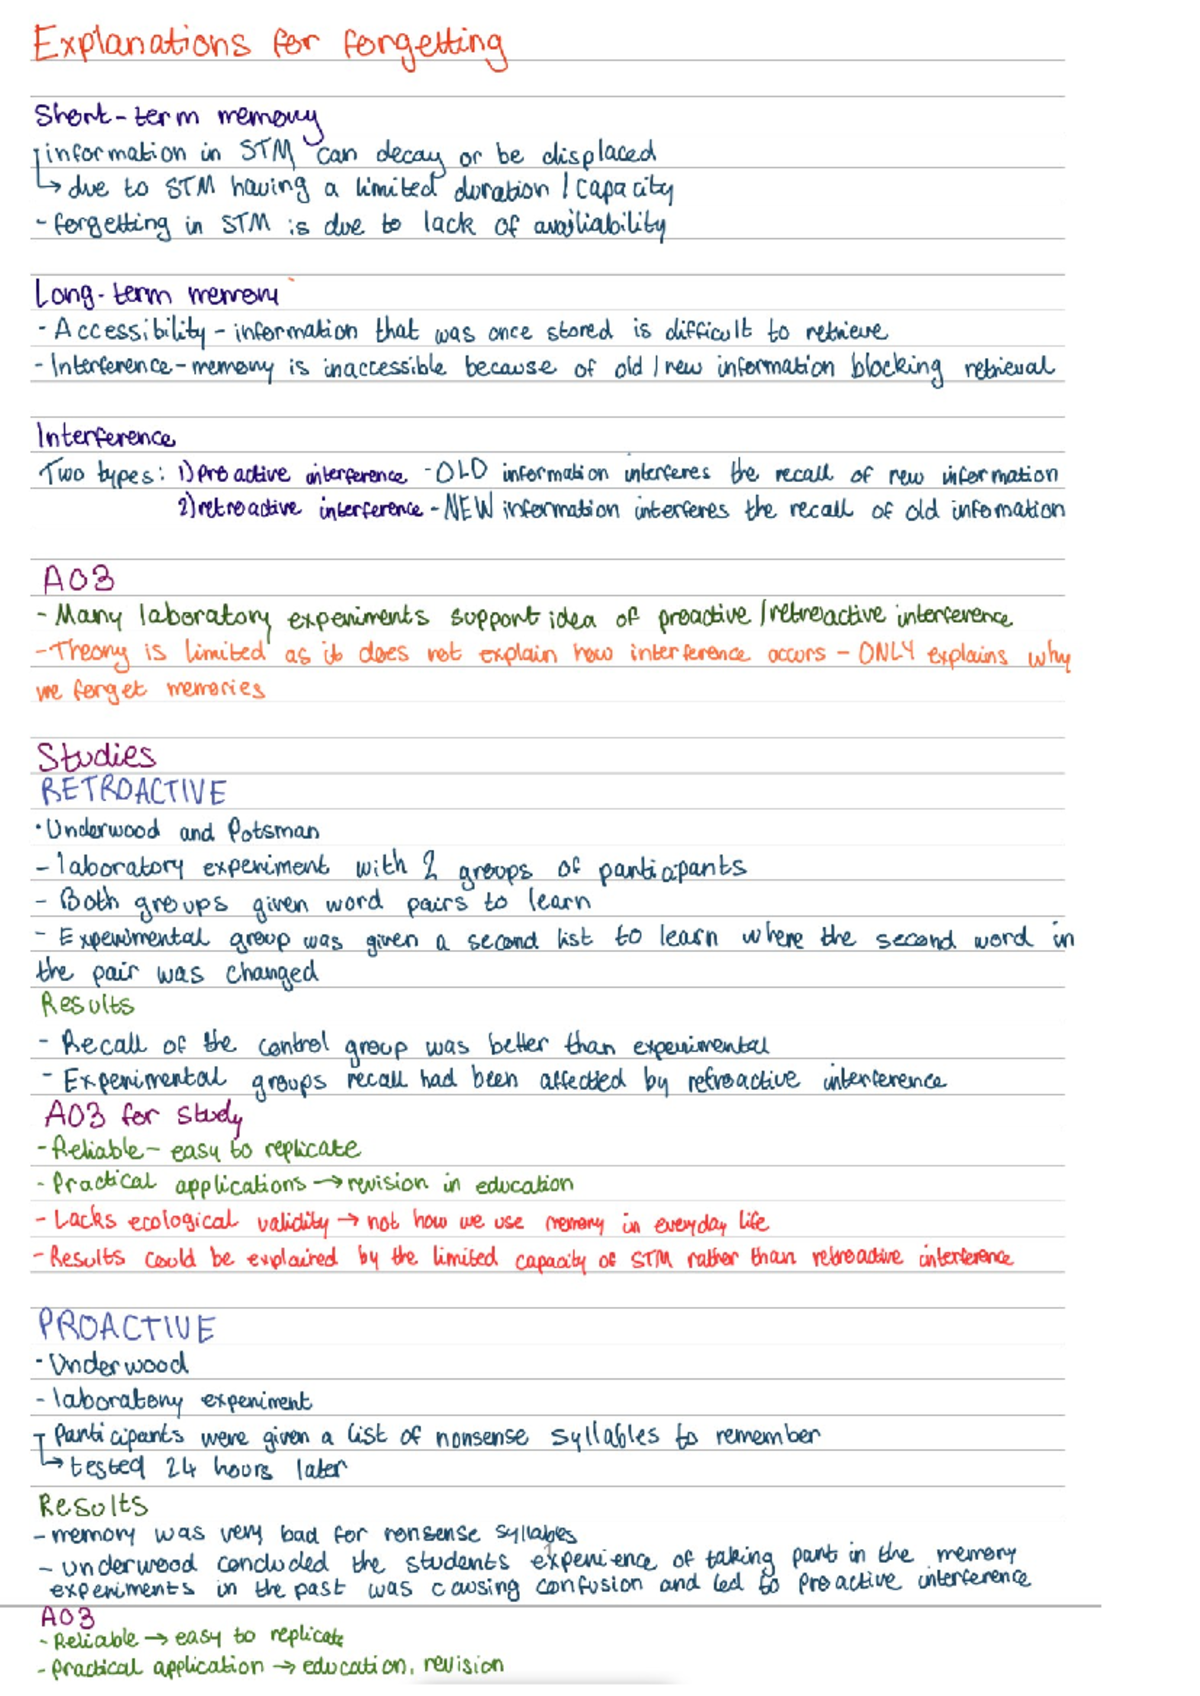 Explanations for forgetting
Short-term memory
information in STM can decay or be displaced
↳ due to STM having a limited duration / capacity
- forgetting in STM is due to lack of availiability
Long-term memory
- Accessibility - information that was once stored is difficult to retrieve
- Interference - memory is inaccessible because of old / new information blocking retrieval
Interference
Two types: 1) proactive interference - OLD information interferes the recall of new information
2) retroactive interference - NEW information interferes the recall of old infomation
A03
- Many laboratory experiments support idea of proactive / retroactive interference
- Theory is limited as it does not explain how interference occurs - ONLY explains why
we forget memories
Studies
RETROACTIVE
· Underwood and Potsman
- laboratory experiment with 2 groups of participants
- Both groups given word pairs to learn
- Experimental group was given a second list to learn where the second word in
the pair was changed
Results
- Recall of the control group was better than experimental
- Experimental groups recall had been affected by retroactive interference
A03 for study
- Reliable - easy to replicate
- Practical applications → revision in education
- Lacks ecological validity → not how we use memory in everyday life
- Results could be explained by the limited capacity of STM rather than retroactive interference
PROACTIVE
· Underwood
- laboratory experiment
Participants were given a list of nonsense syllables to remember
↳ tested 24 hours later
Results
- memory was very bad for nonsense syllables
- underwood concluded the students experience of taking part in the memory
experiments in the past was causing confusion and led to proactive interference
A03
- Reliable → easy to replicate
- practical application → education, revision